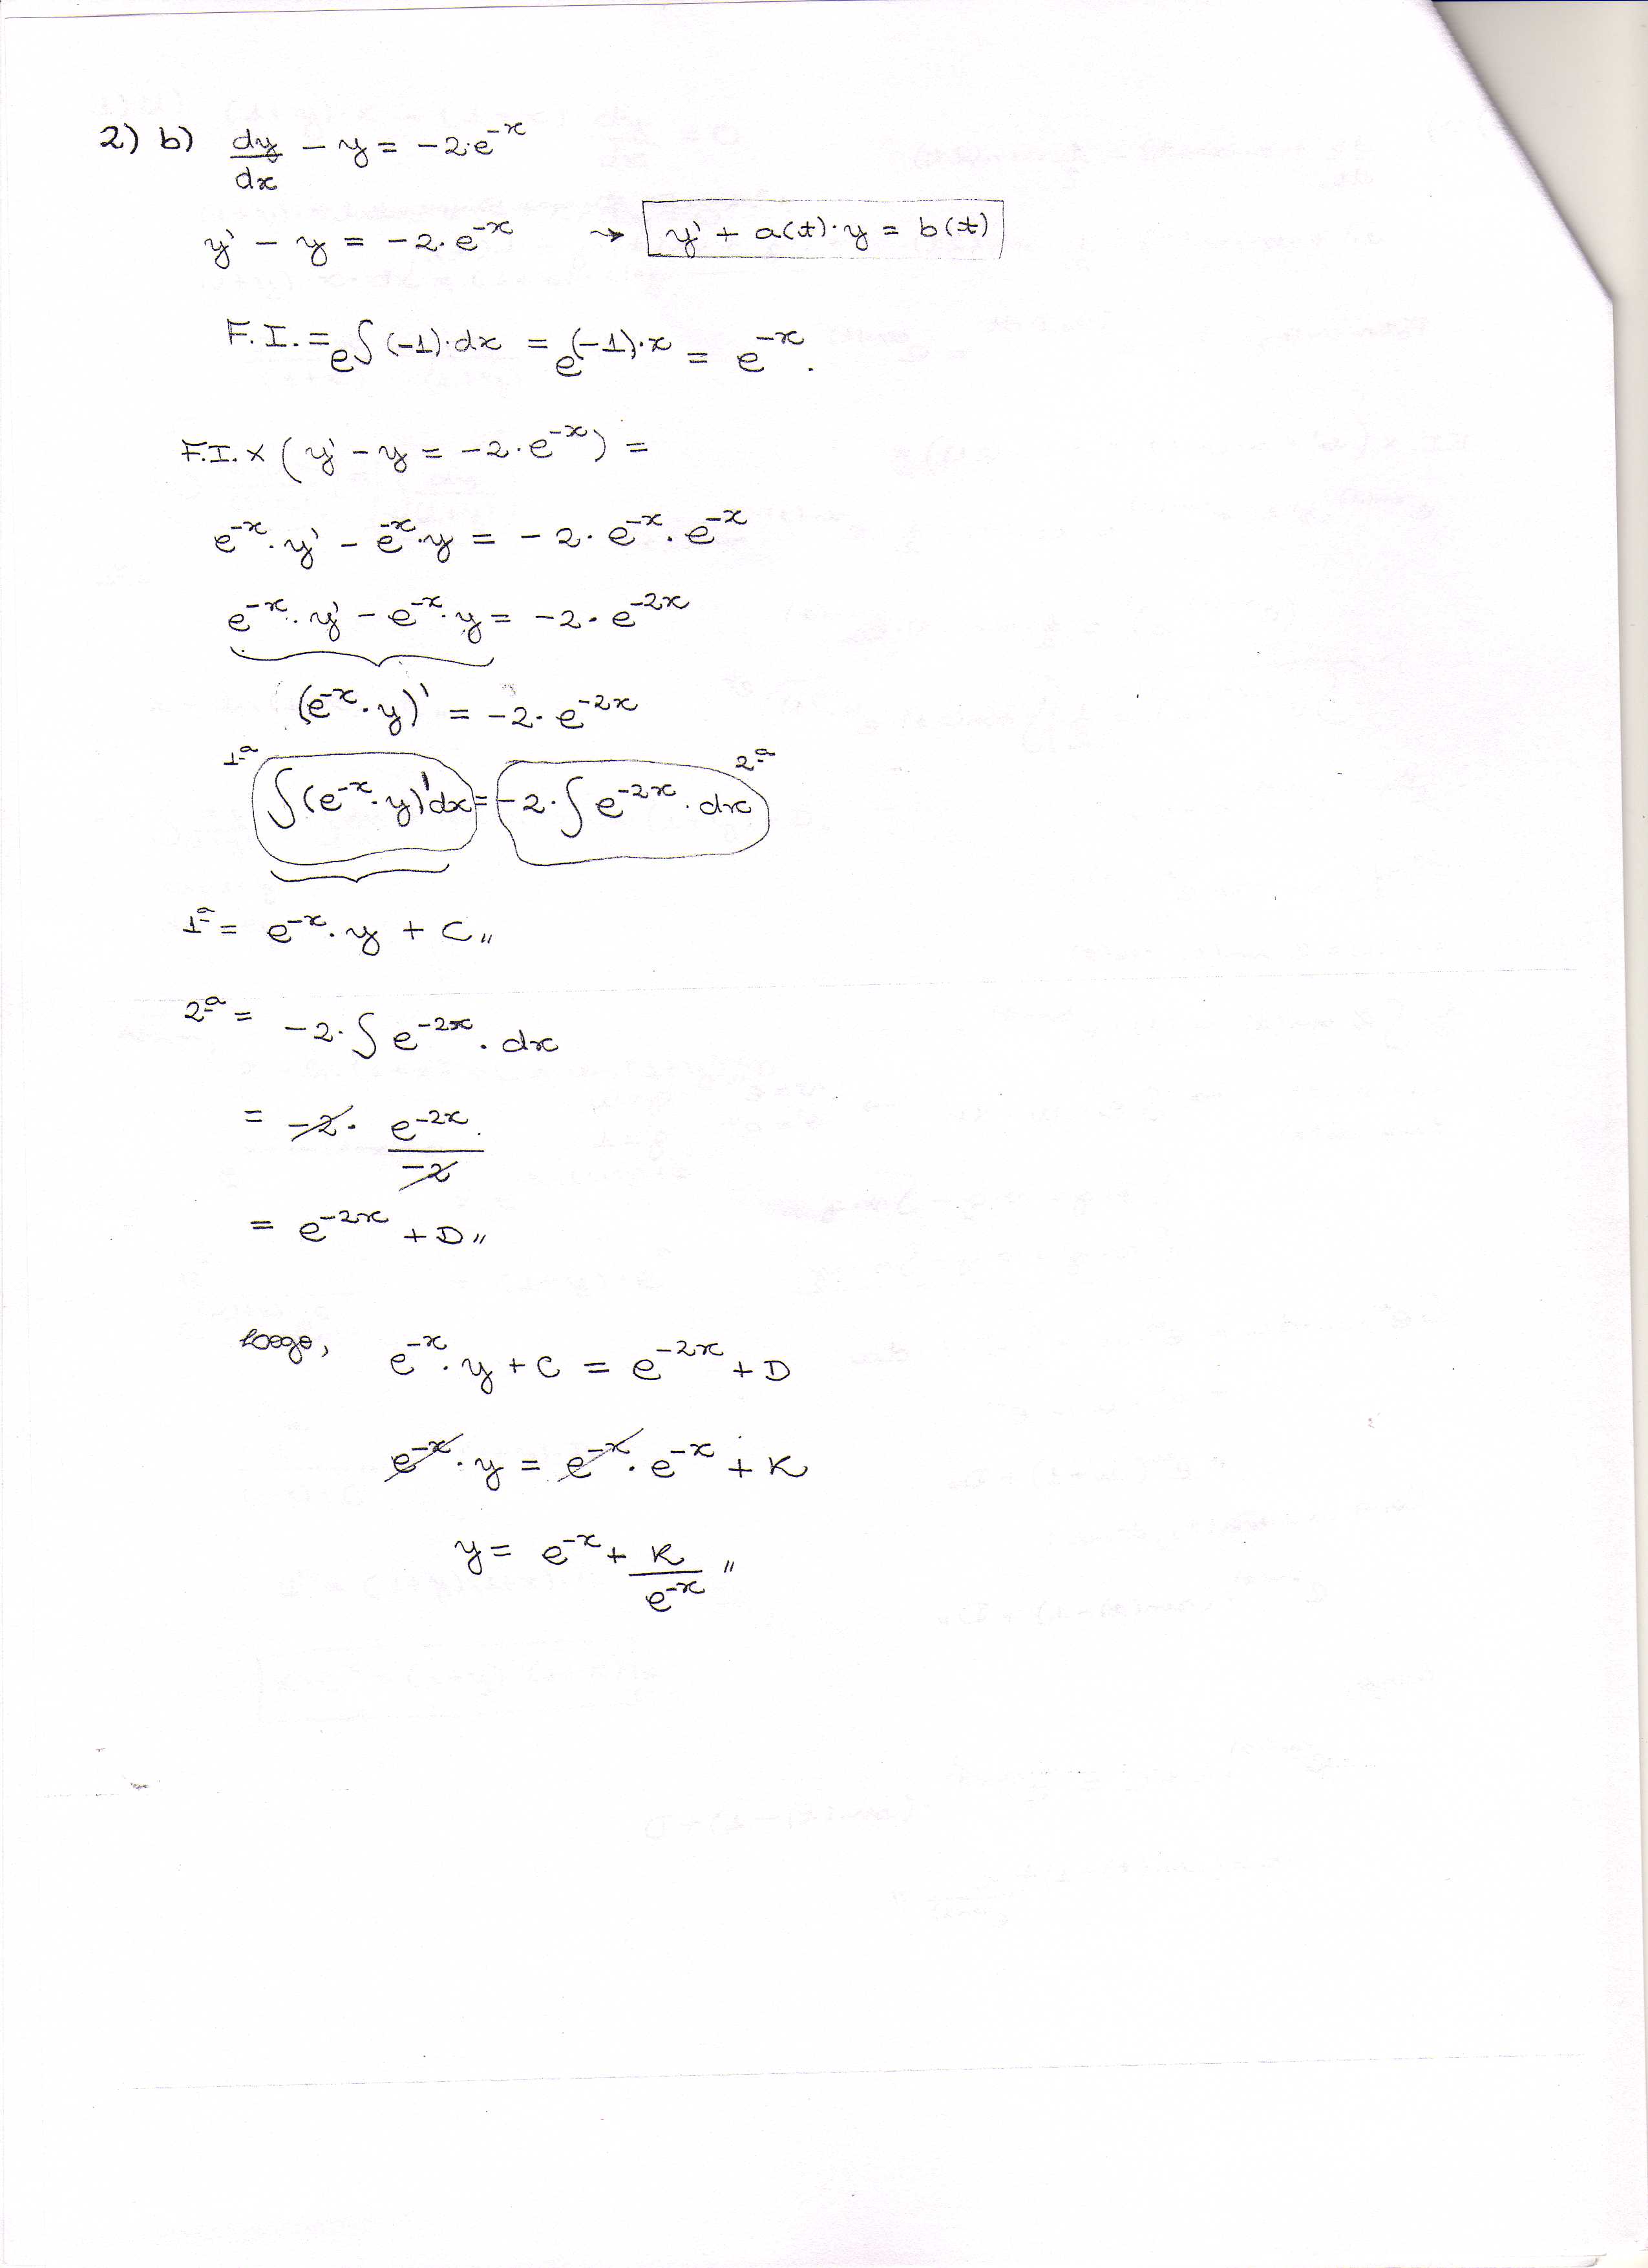 2) b) dy/dx - y = -2·e^-x
y' - y = -2·e^-x → y' + a(t)·y = b(t)
F.I. = e^∫(-1)·dx = e^(-1)·x = e^-x.
F.I. × (y' - y = -2·e^-x) =
e^-x·y' - e^-x·y = -2·e^-x·e^-x
e^-x·y' - e^-x·y = -2·e^-2x
(e^-x·y)' = -2·e^-2x
1ª ∫(e^-x·y)'dx = -2·∫e^-2x·dx 2ª
1ª = e^-x·y + C,,
2ª = -2·∫e^-2x·dx
= -2·e^-2x/-2
= e^-2x + D,,
Logo, e^-x·y + C = e^-2x + D
e^-x·y = e^-x·e^-x + K
y = e^-x + K/e^-x ,,